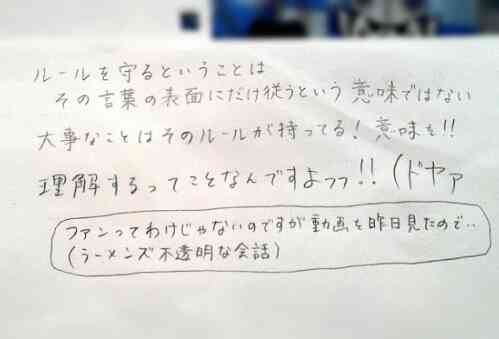 ルールを守るということは
その言葉の表面にだけ従うという意味ではない
大事なことはそのルールが持ってる!意味を!!
理解するってことなんですよフフ!!(ドヤァ
ファンってわけじゃないのですが動画を昨日見たので‥
(ラーメンズ不透明な会話)